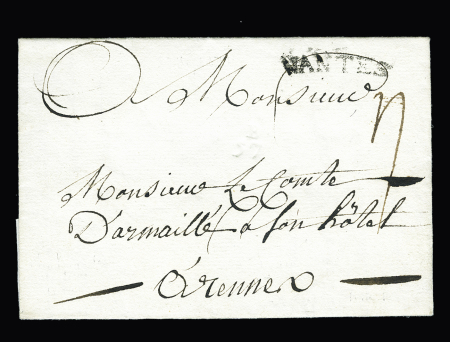 NANTES
Monsieur
Monsieur Le Comte
Darmaillé a son hôtel
ARennes
7